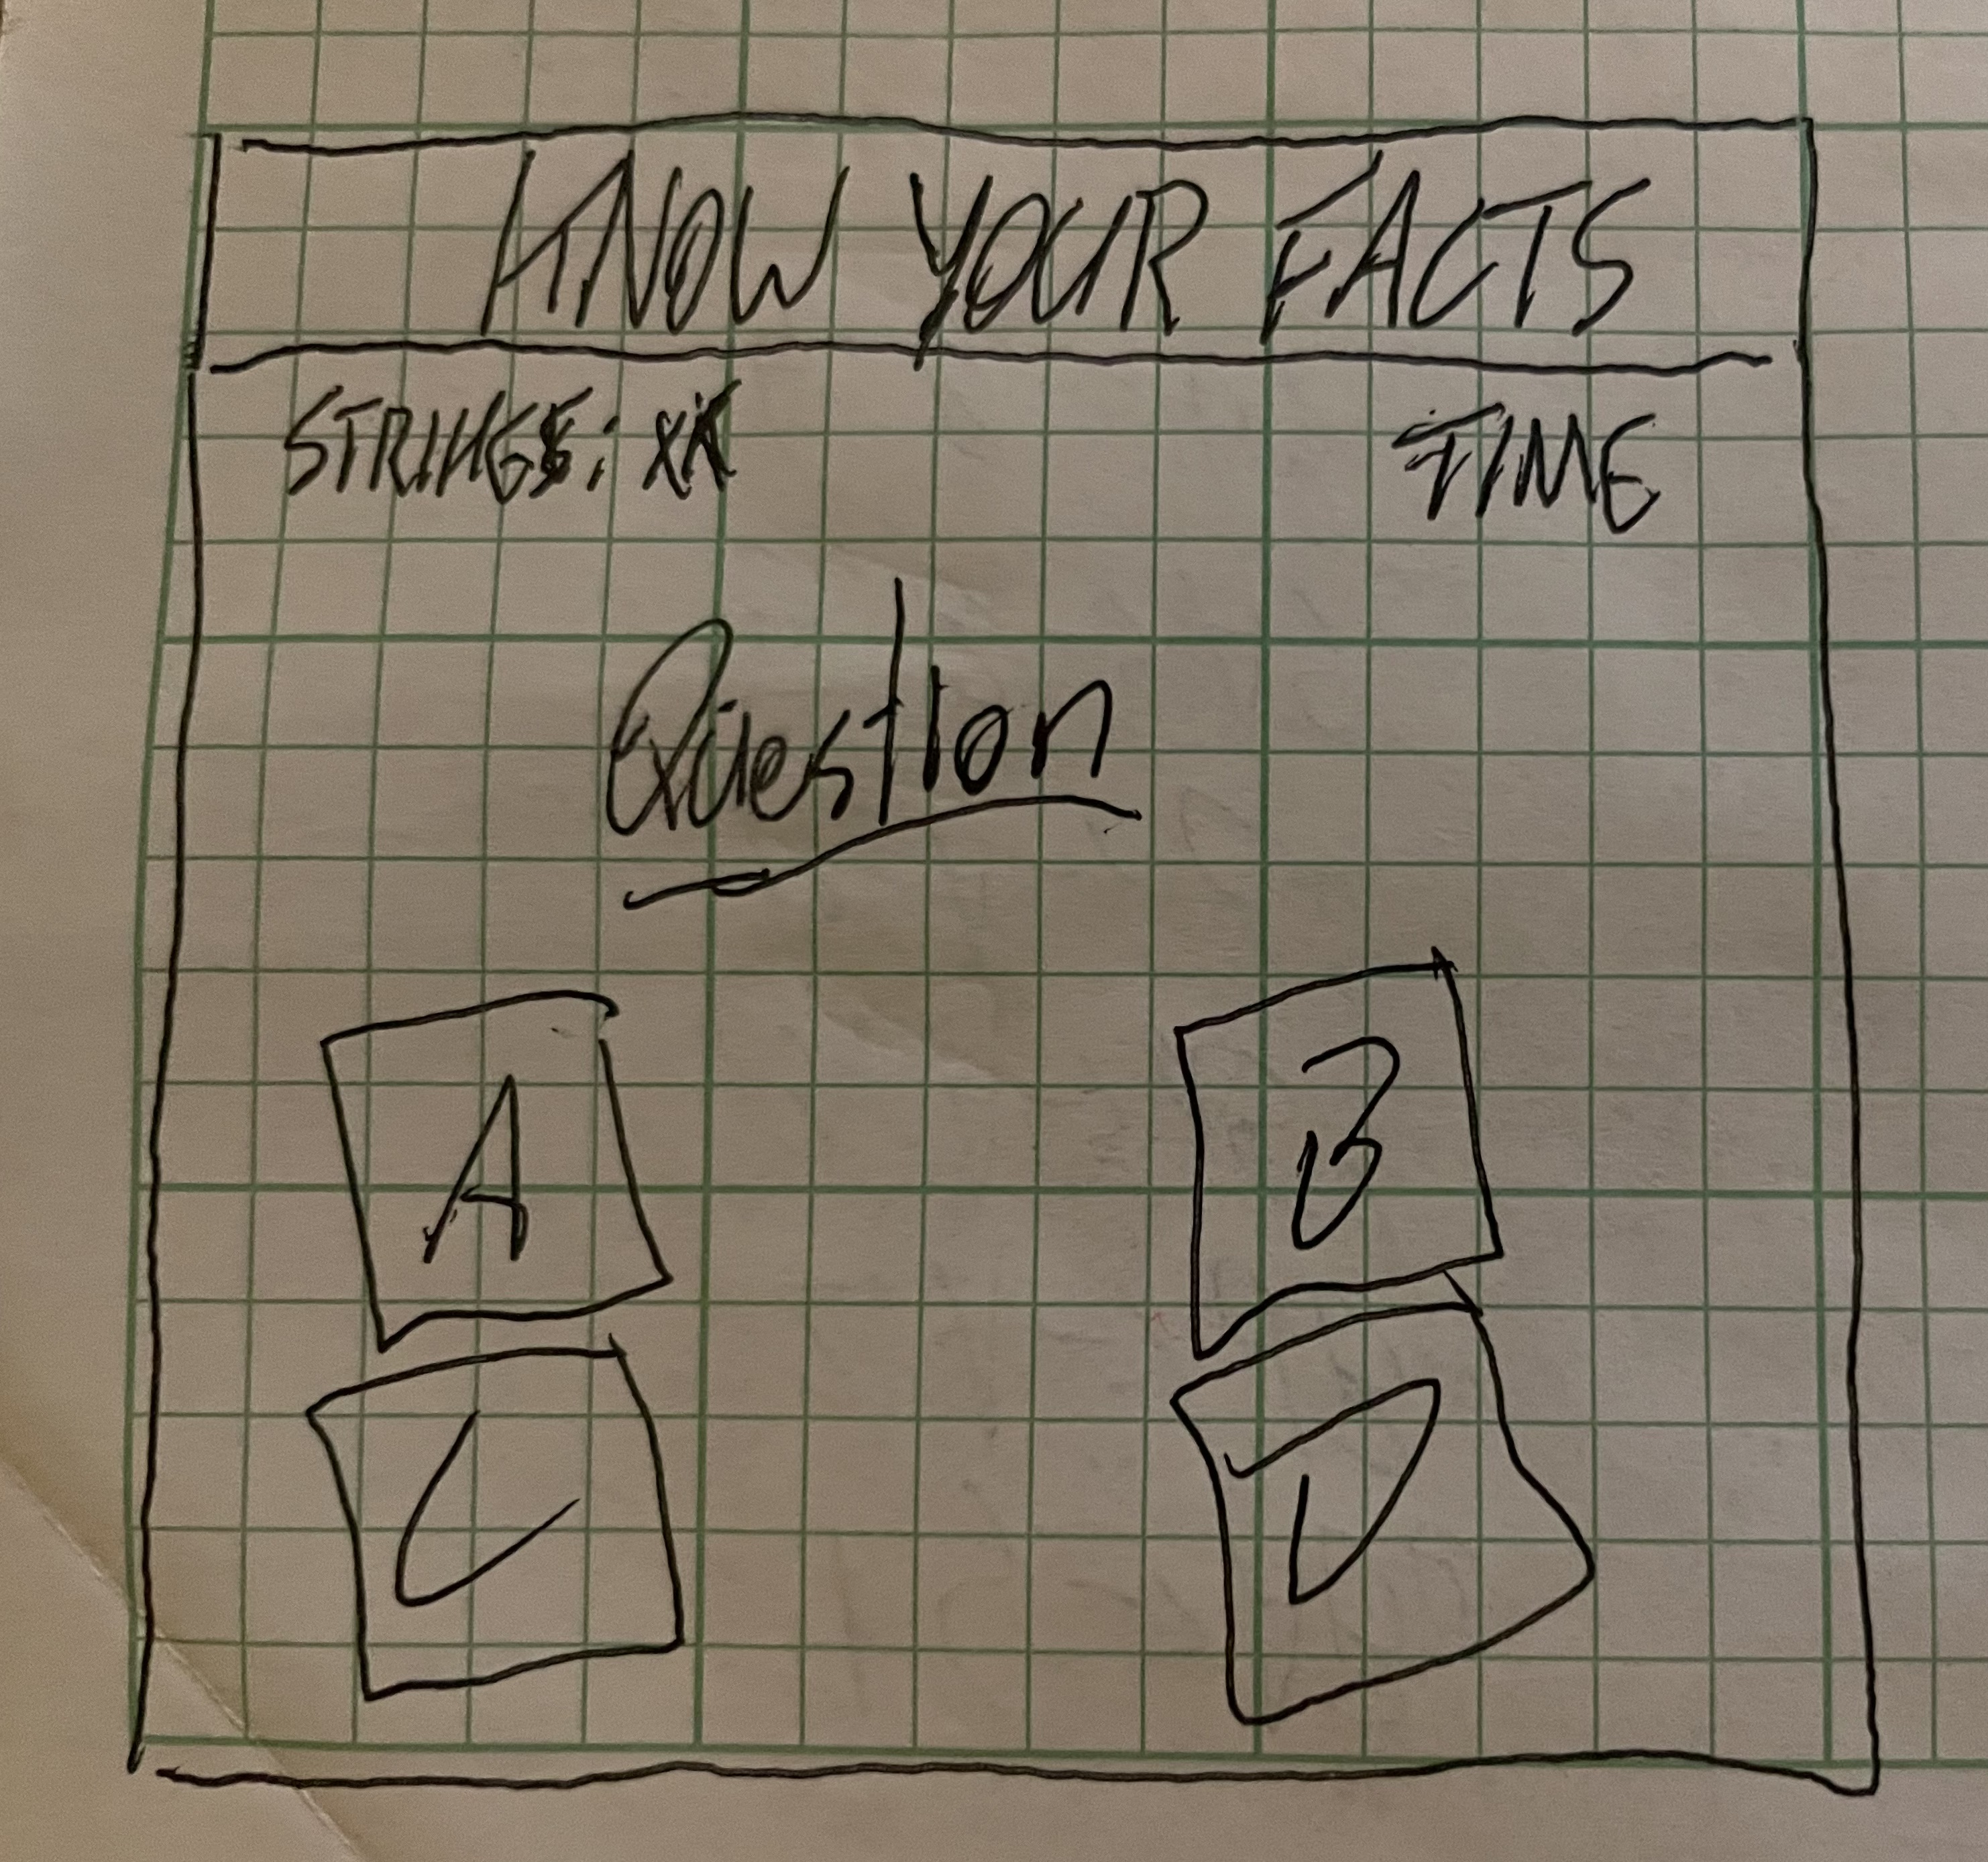 KNOW YOUR FACTS
STRIKES: XX
TIME
Question
A
B
C
D